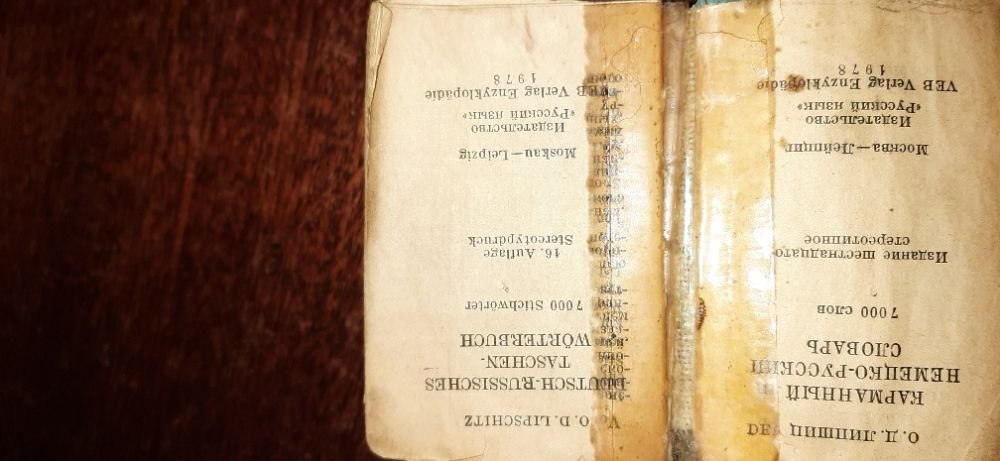 О. Д. ЛИПШИЦ
КАРМАННЫЙ
НЕМЕЦКО-РУССКИЙ
СЛОВАРЬ
7000 слов
Издание шестнадцатое
стереотипное
Москва—Лейпциг
Издательство
«Русский язык»
VEB Verlag Enzyklopädie
1978
O. D. LIPSCHITZ
DEUTSCH-RUSSISCHES
TASCHEN-
WÖRTERBUCH
7000 Stichwörter
16. Auflage
Stereotypdruck
Moskau—Leipzig
Издательство
«Русский язык»
VEB Verlag Enzyklopädie
1978